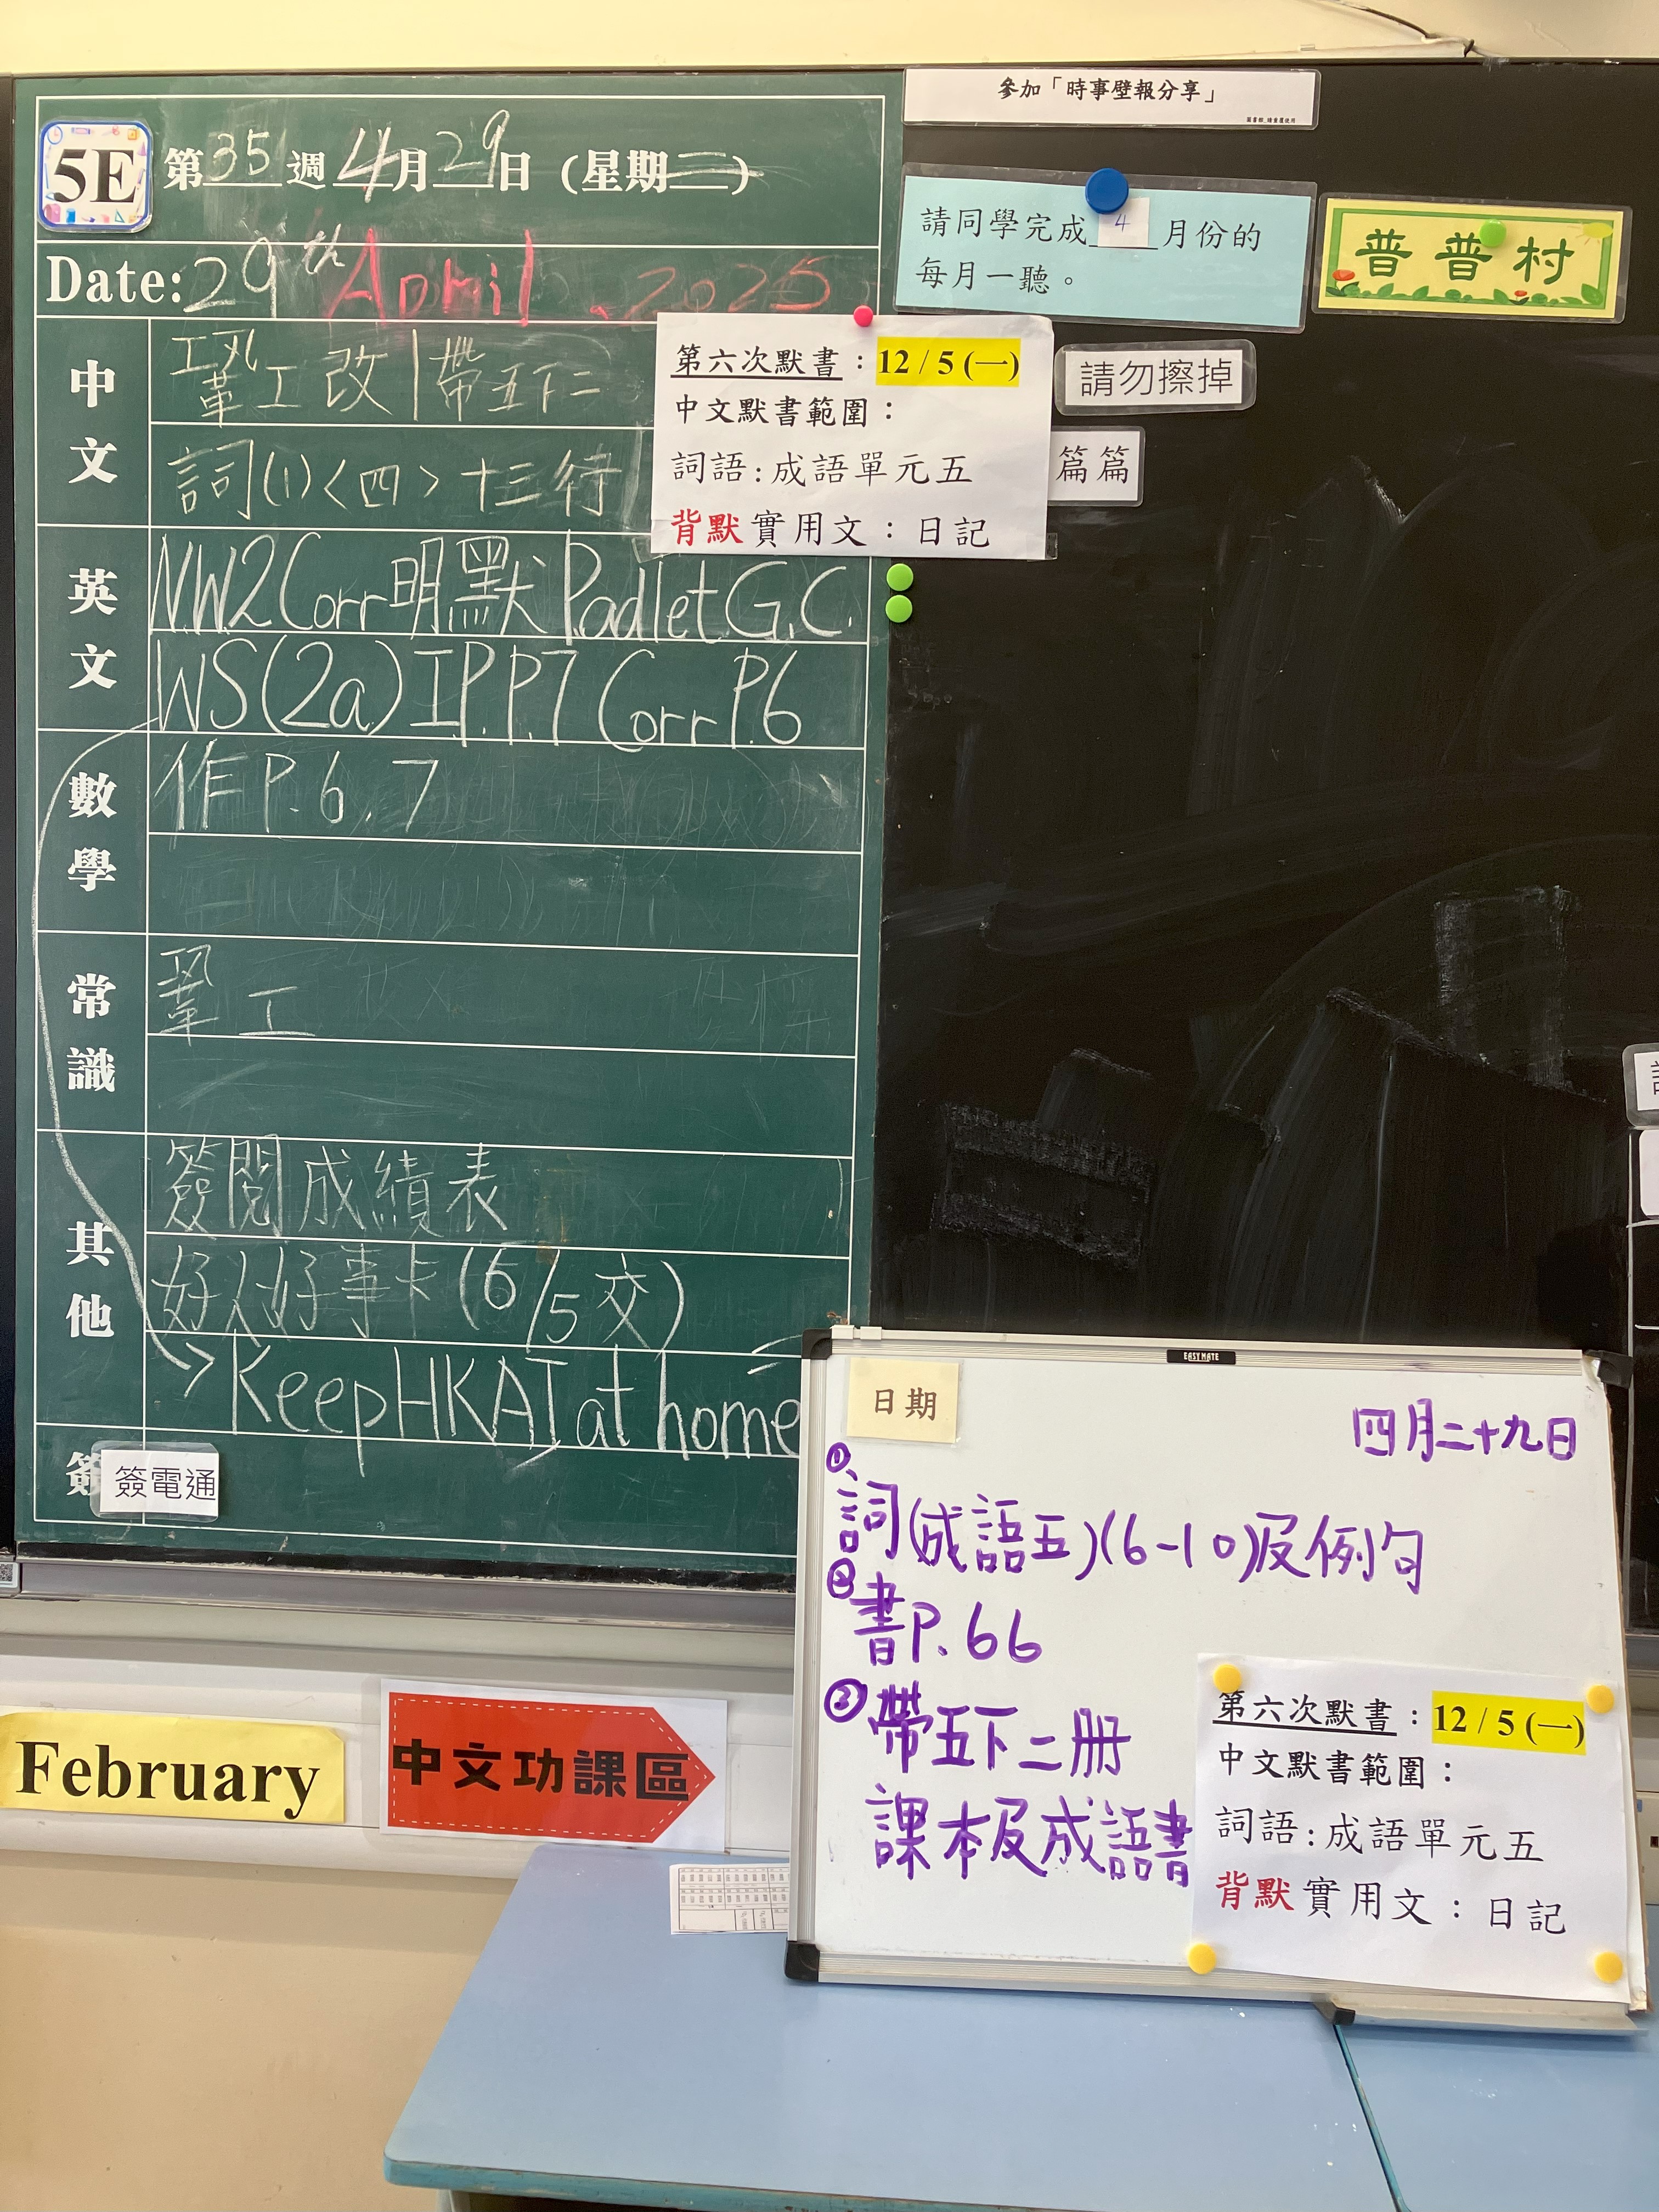 參加「時事壁報分享」
5E
第35週 4月29日 (星期二)
Date: 29th April .2025
請同學完成 4 月份的
每月一聽。
普普村
中文
鞏工改|帶五下二
詞(1)<四>十三行
第六次默書：12 / 5 (一)
中文默書範圍：
詞語:成語單元五
背默實用文：日記
請勿擦掉
篇篇
英文
N.W.2 Corr 明默 Padlet G.C.
WS(2a) I.P. P.7 Corr P.6
數學
作 P.6,7
常識
鞏工
其他
簽閱成績表
好人好事卡(6/5交)
→ Keep HKAT at home
簽
簽電通
EASY MATE
日期
四月二十九日
①、詞(成語五)(6-10)及例句
②書P.66
③帶五下二冊
課本及成語書
第六次默書：12 / 5 (一)
中文默書範圍：
詞語:成語單元五
背默實用文：日記
February
中文功課區